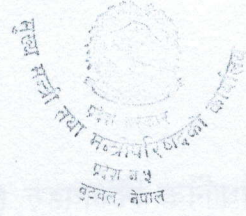 मुख्य मन्त्री तथा मन्त्रीपरिषद्को कार्यालय
प्रदेश सरकार
प्रदेश नं ५
बुटवल, नेपाल